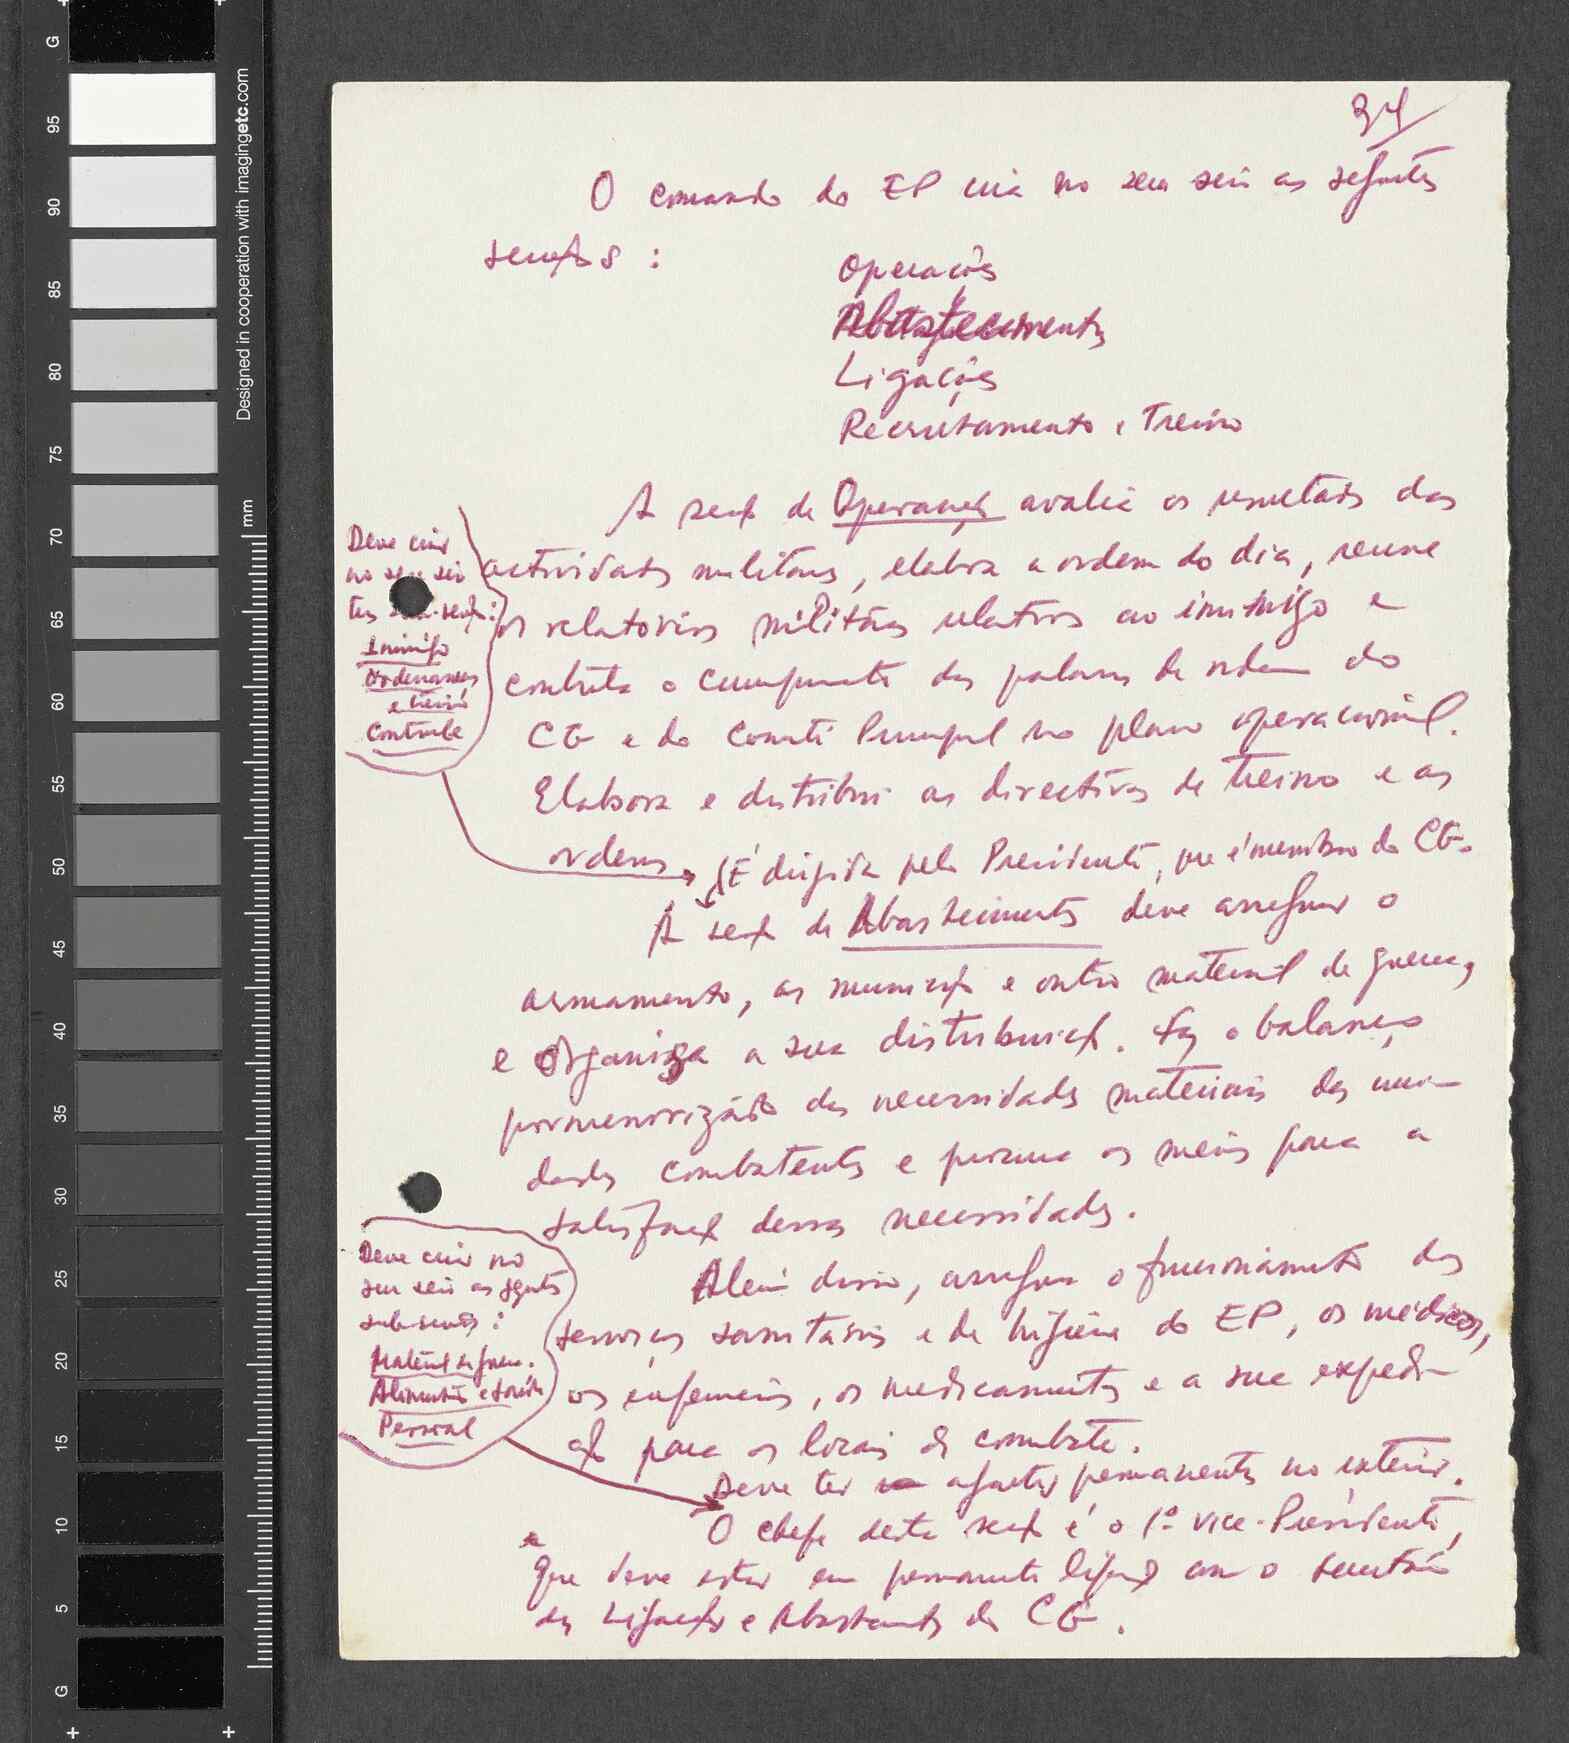 34
O comando do EP cria no seu seio as seguintes
secções :
Operações
Abastecimentos
Ligações
Recrutamento e Treino
A secção de Operações avalia os resultados das
actividades militares, elabora a ordem do dia, reune
os relatórios militares relativos ao inimigo e
controla o cumprimento das palavras de ordem do
CG e do Comité Principal no plano operacional.
Elabora e distribui as directivas de treino e as
ordens
(É dirigida pelo Presidente, que é membro do CG.
A secção de Abastecimentos deve assegurar o
armamento, as munições e outro material de guerra,
e organiza a sua distribuição. Faz o balanço
pormenorizado das necessidades materiais das uni-
dades combatentes e procura os meios para a
satisfação dessas necessidades.
Além disso, assegura o funcionamento dos
serviços sanitários e de higiene do EP, os médicos,
os enfermeiros, os medicamentos e a sua expedi-
ção para os locais de combate.
Deve ter agentes permanentes no interior.
O chefe desta secção é o 1º vice-Presidente,
que deve estar em permanente ligação com o secretário
das Ligações e Abastecimentos do CG.
Deve criar
no seu seio
três sub-secções:
Inimigo
Ordenanças
e treino
Controle
Deve criar no
seu seio as sgtes
sub-secções:
Material de guerra.
Alimentação e saúde
Pessoal
Designed in cooperation with imagingetc.com
mm
G
95
90
85
80
75
70
65
60
55
50
45
40
35
30
25
20
15
10
5
G